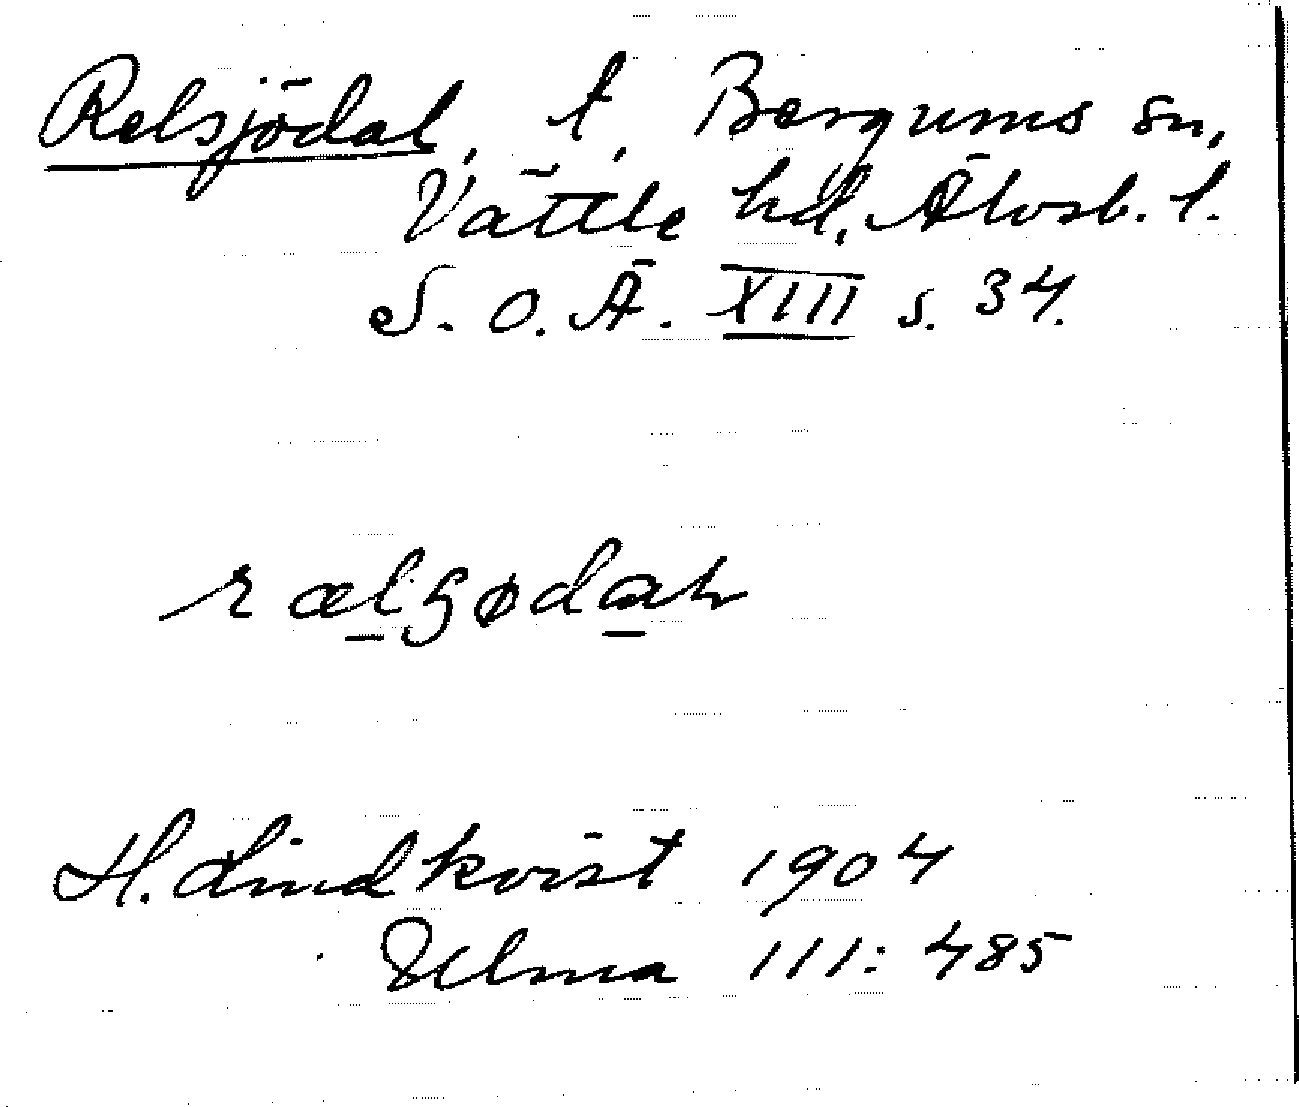 Relsjödal, t. Bergums sn,
Vättle hd, Älvsb. l.
S. O. Ä. XIII s. 34.
rælʒødah
H. Lindkvist 1904
Ulma 111:485